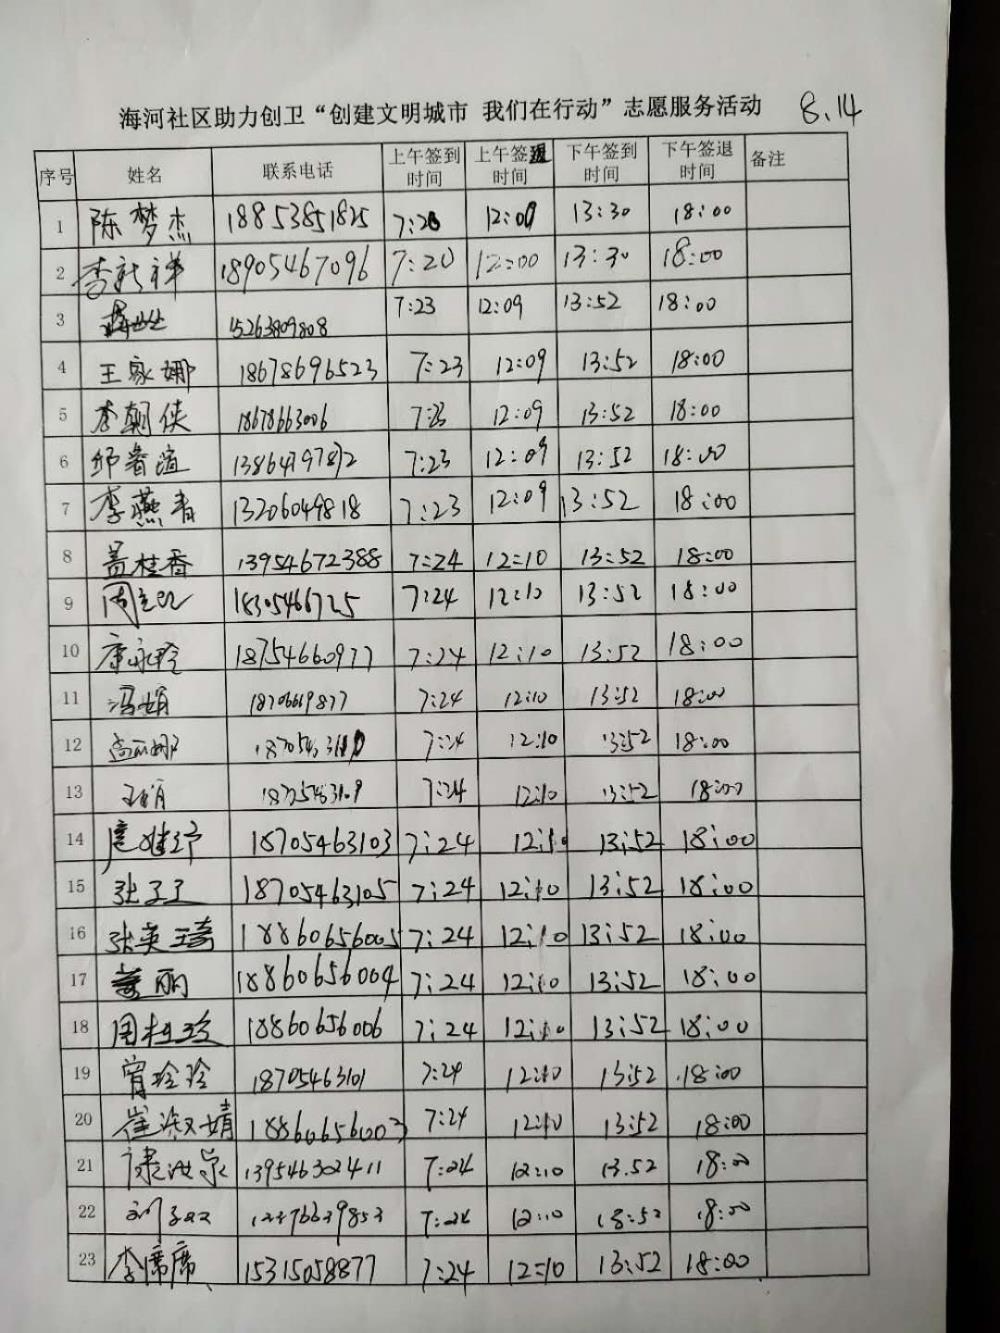 海河社区助力创卫“创建文明城市 我们在行动”志愿服务活动 8.14
序号 姓名 联系电话 上午签到时间 上午签退时间 下午签到时间 下午签退时间 备注
1 陈梦杰 18853851825 7:20 12:00 13:30 18:00
2 李新祥 18905467096 7:20 12:00 13:30 18:00
3 15263809808 7:23 12:09 13:52 18:00
4 王家娜 18678696523 7:23 12:09 13:52 18:00
5 李朝侠 18678663006 7:23 12:09 13:52 18:00
6 邱春谊 13864797872 7:23 12:09 13:52 18:00
7 李燕青 13206049818 7:23 12:09 13:52 18:00
8 盖桂香 13954672388 7:24 12:10 13:52 18:00
9 18305466725 7:24 12:10 13:52 18:00
10 康永玲 18754660977 7:24 12:10 13:52 18:00
11 冯娟 18706619877 7:24 12:10 13:52 18:00
12 7:24 12:10 13:52 18:00
13 18705463109 7:24 12:10 13:52 18:00
14 18705463103 7:24 12:10 13:52 18:00
15 张子文 18705463105 7:24 12:10 13:52 18:00
16 张英琦 18860656005 7:24 12:10 13:52 18:00
17 丽 18860656004 7:24 12:10 13:52 18:00
18 周桂玲 18860656006 7:24 12:10 13:52 18:00
19 曾玲玲 18705463101 7:24 12:10 13:52 18:00
20 崔淑婧 18860656003 7:24 12:10 13:52 18:00
21 139546302411 7:24 12:10 13.52 18:00
22 7:24 12:10 18:52 18:00
23 李席席 15315058877 7:24 12:10 13:52 18:00